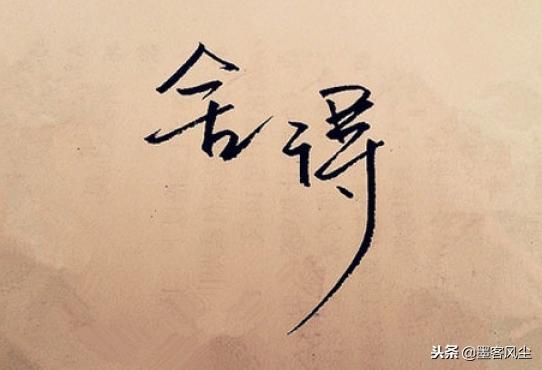 舍得
头条 @墨客风尘